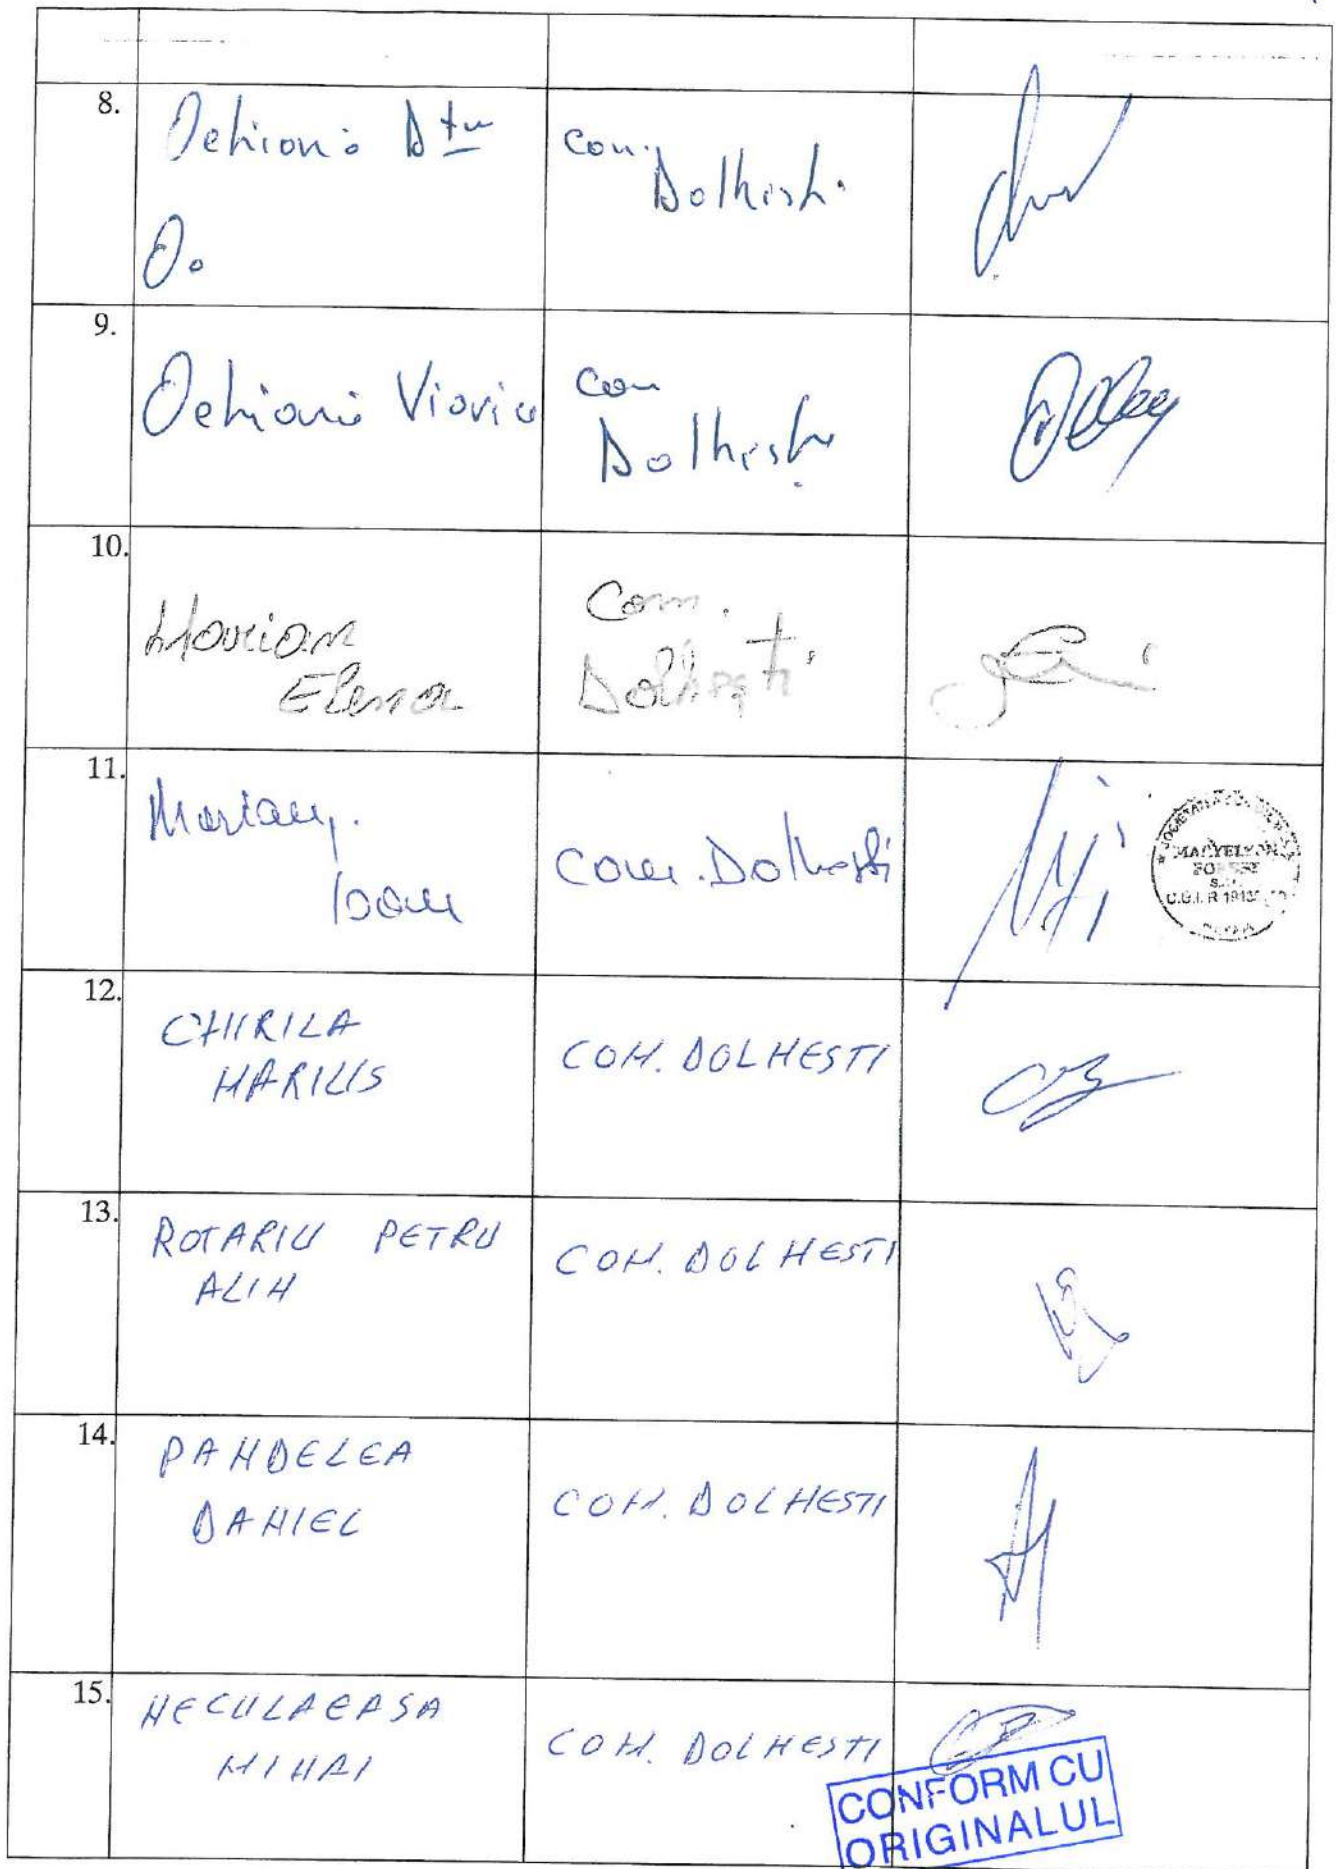 8.
Ochiană Dtru com.
Dolhesti
O.
9.
Ochiană Viorica com
Dolhesti
10.
Marian Com.
Elena Dolhești
11.
Marian
Ioan Com. Dolhesti
MARYELYON
FOREST
S.R.L.
C.U.I. R
12.
CHIRILA
MARILIS COM. DOLHESTI
13.
ROTARIU PETRU COM. DOLHESTI
ALIN
14.
PANDELEA
DANIEL COM. DOLHESTI
15.
NECULAEASA
MIHAI COM. DOLHESTI
CONFORM CU
ORIGINALUL